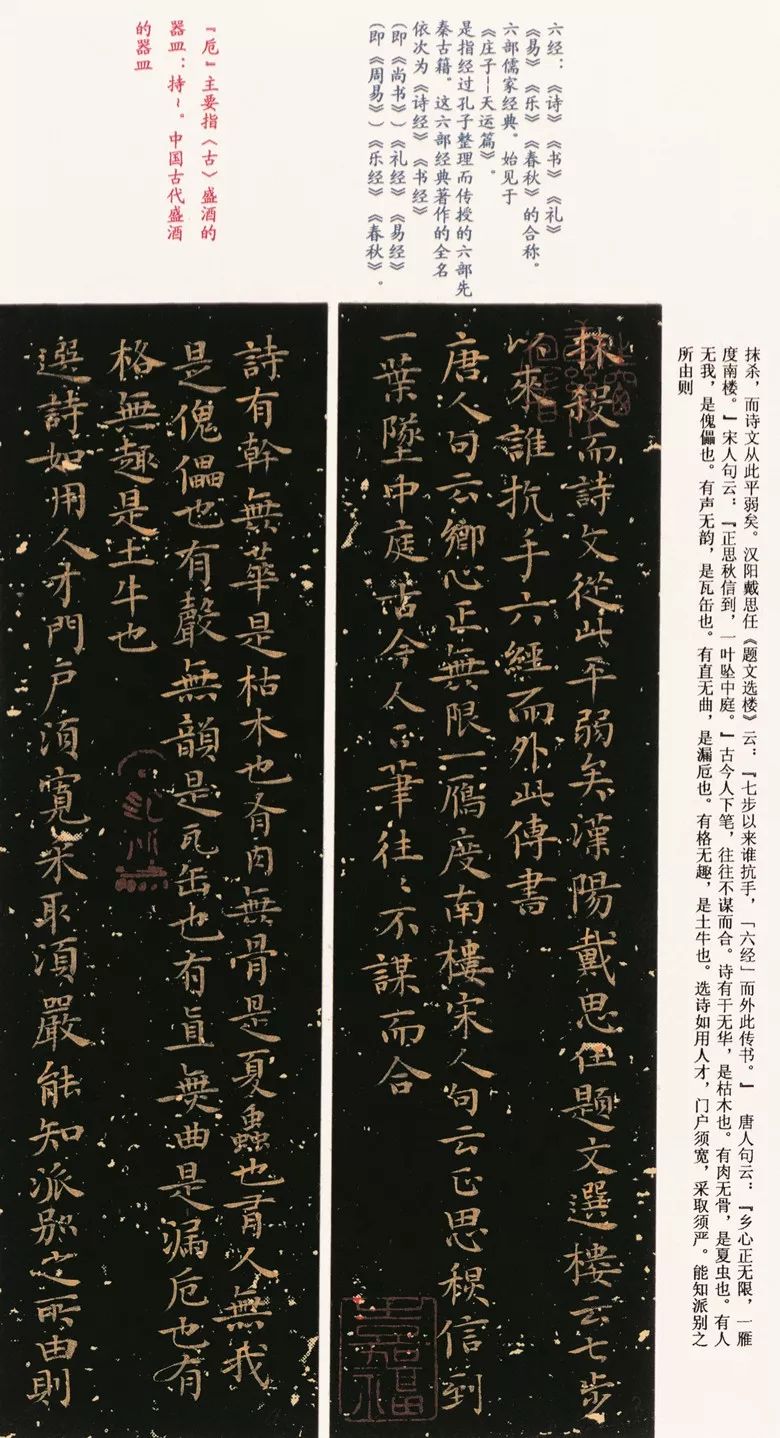 六经：《诗》《书》《礼》
《易》《乐》《春秋》的合称。
六部儒家经典。始见于
《庄子—天运篇》。
是指经过孔子整理而传授的六部先
秦古籍。这六部经典著作的全名
依次为《诗经》《书经》
（即《尚书》）《礼经》《易经》
（即《周易》）《乐经》《春秋》。
『卮』主要指〈古〉盛酒的
器皿：持～。中国古代盛酒
的器皿
抹杀，而诗文从此平弱矣。汉阳戴思任《题文选楼》云：『七步以来谁抗手，「六经」而外此传书。』 唐人句云：『乡心正无限，一雁
度南楼。』宋人句云：『正思秋信到，一叶坠中庭。』古今人下笔，往往不谋而合。诗有干无华，是枯木也。有肉无骨，是夏虫也。有人
无我，是傀儡也。有声无韵，是瓦缶也。有直无曲，是漏卮也。有格无趣，是土牛也。选诗如用人才，门户须宽，采取须严。能知派别之
所由则
抹殺而詩文從此平弱矣漢陽戴思任題文選樓云七步
以來誰抗手六經而外此傳書
唐人句云鄉心正無限一鴈度南樓宋人句云正思秋信到
一葉墜中庭古今人下筆往々不謀而合
詩有幹無華是枯木也有肉無骨是夏蟲也有人無我
是傀儡也有聲無韻是瓦缶也有直無曲是漏卮也有
格無趣是土牛也
選詩如用人才門户須寬采取須嚴能知派別之所由則